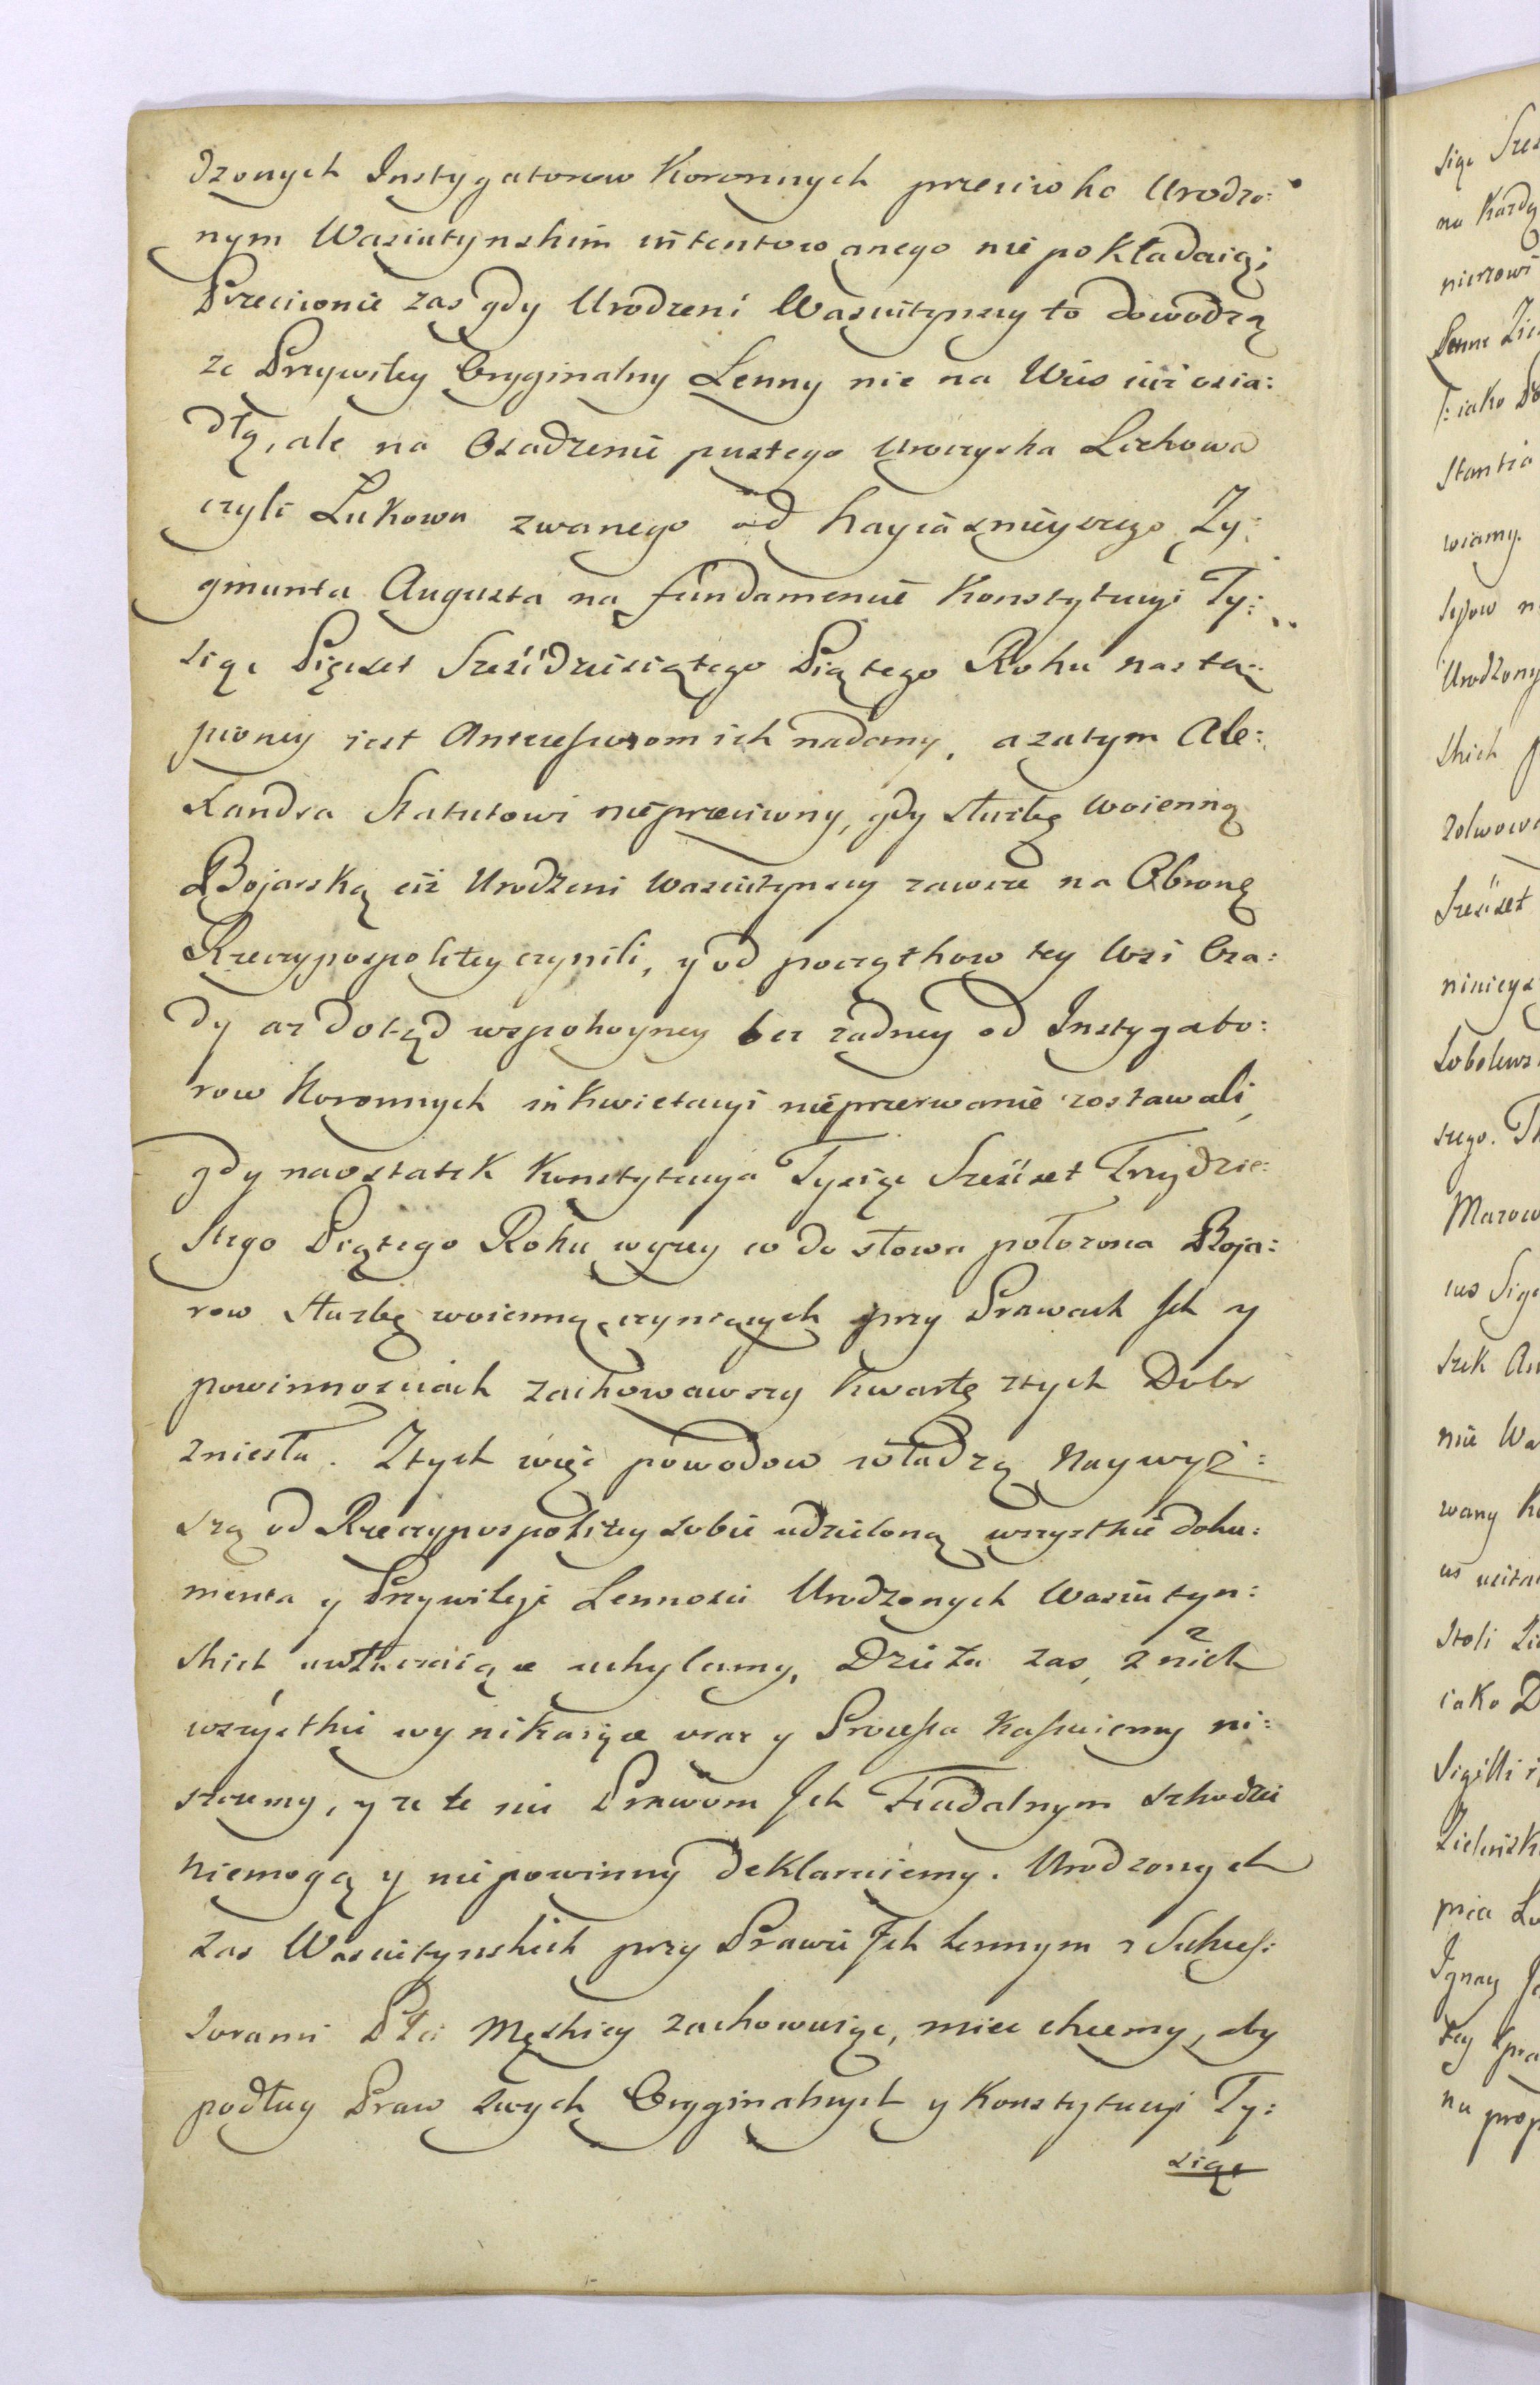 dzonych Instygatorow Koronnych przeciwko Urodzo:
nym Wasiutynskim intentowanego nie pokładaią;
Przeciwnie zas gdy Urodzeni Wasiutynscy to dowodzą
ze Przywiley Oryginalny Lenny nie na Wies iuż osia:
dłą, ale na Osadzenie pustego Uroczyska Lichowa
czyli Łukowa zwanego od Nayiaśnieyszego Zy:
gmunta Augusta na fundamencie Konstytucyi Ty:
siąc Pięćset Sześćdziesiątego Piątego Roku nastą:
pioney iest Antecessorom ich nadany, a zatym Ale:
xandra Statutowi nieprzeciwny, gdy służbę woienną
Bojarską ciż Urodzeni Wasiutynscy zawsze na Obronę
Rzeczypospolitey czynili, y od początkow tey Wsi Osa:
dy az dotąd wspokoyney bez zadney od Instygato:
row Koronnych inkwietacyi nieprzerwanie zostawali,
gdy naostatek Konstytucya Tysiąc Sześćset Trzydzie:
stego Piątego Roku wyzey co do słowa położona Boja:
row służbę woienną czyniących przy Prawach Ich y
powinnościach zachowawszy kwartę ztych Dobr
zniesła. Ztych więc powodow władzą Naywyż:
szą od Rzeczypospolitey sobie udzieloną wszystkie doku:
menta y Przywileje Lennosci Urodzonych Wasiutyn:
skich uwłaczaiące uchylamy, Dzieła zas z nich
wszystkie wynikaiące oraz y Processa kassuiemy ni:
szczemy, y ze te nic Prawom Ich Feudalnym szkodzić
niemogą y niepowinny deklaruiemy. Urodzonych
zas Wasiutynskich przy Prawie Ich Lennym z Sukces:
sorami Płci Męskiey zachowuiąc, miec chcemy, aby
podług Praw swych Oryginalnych y Konstytucyi Ty:
siąc
siąc
na Każdą
Lenne
T: iako
wiamy.
Urodzony
skich
Sześćset
szego.
nie
wany
iako
Sigilli
na